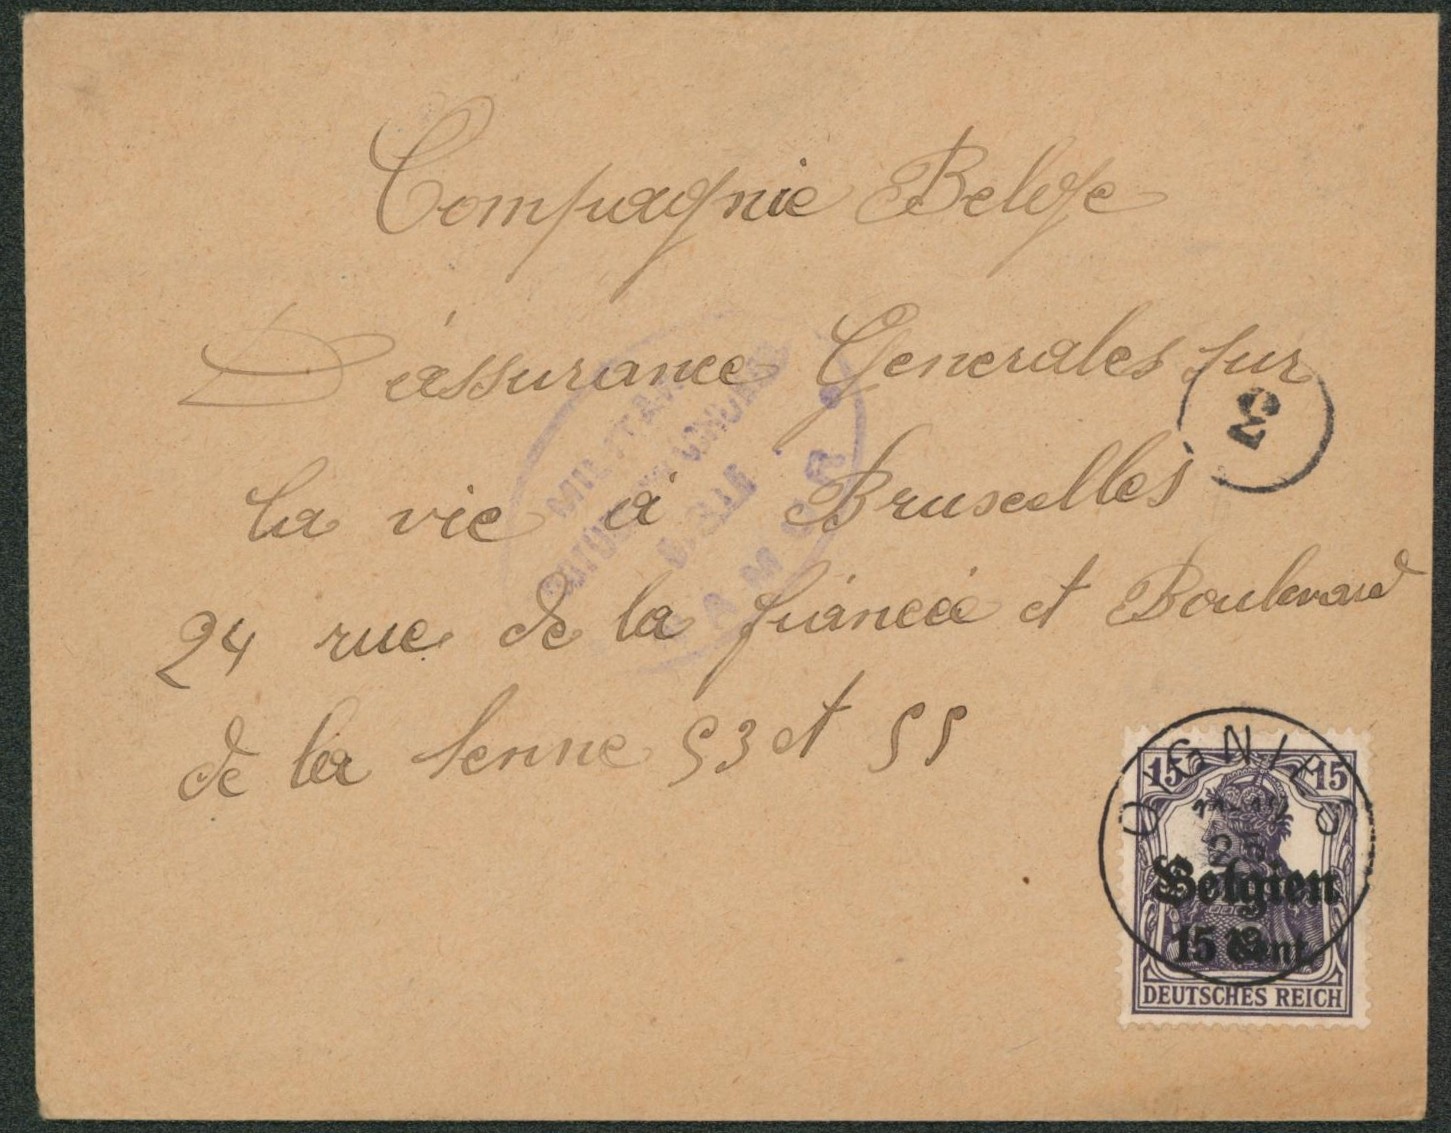 Compagnie Belge
D'assurance Generales sur
la vie à Bruxelles
24 rue de la fiancée et Boulevard
de la Senne 53 et 55
3
MILITÄR
NAMUR
OIGNIES
11-12
25
15 15
Belgien
15 Cent.
DEUTSCHES REICH